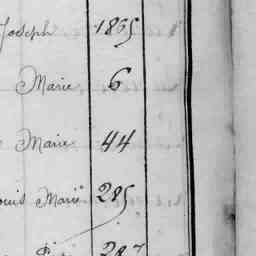 Joseph 1835
Marie 6
Marie 44
Marie 285
287